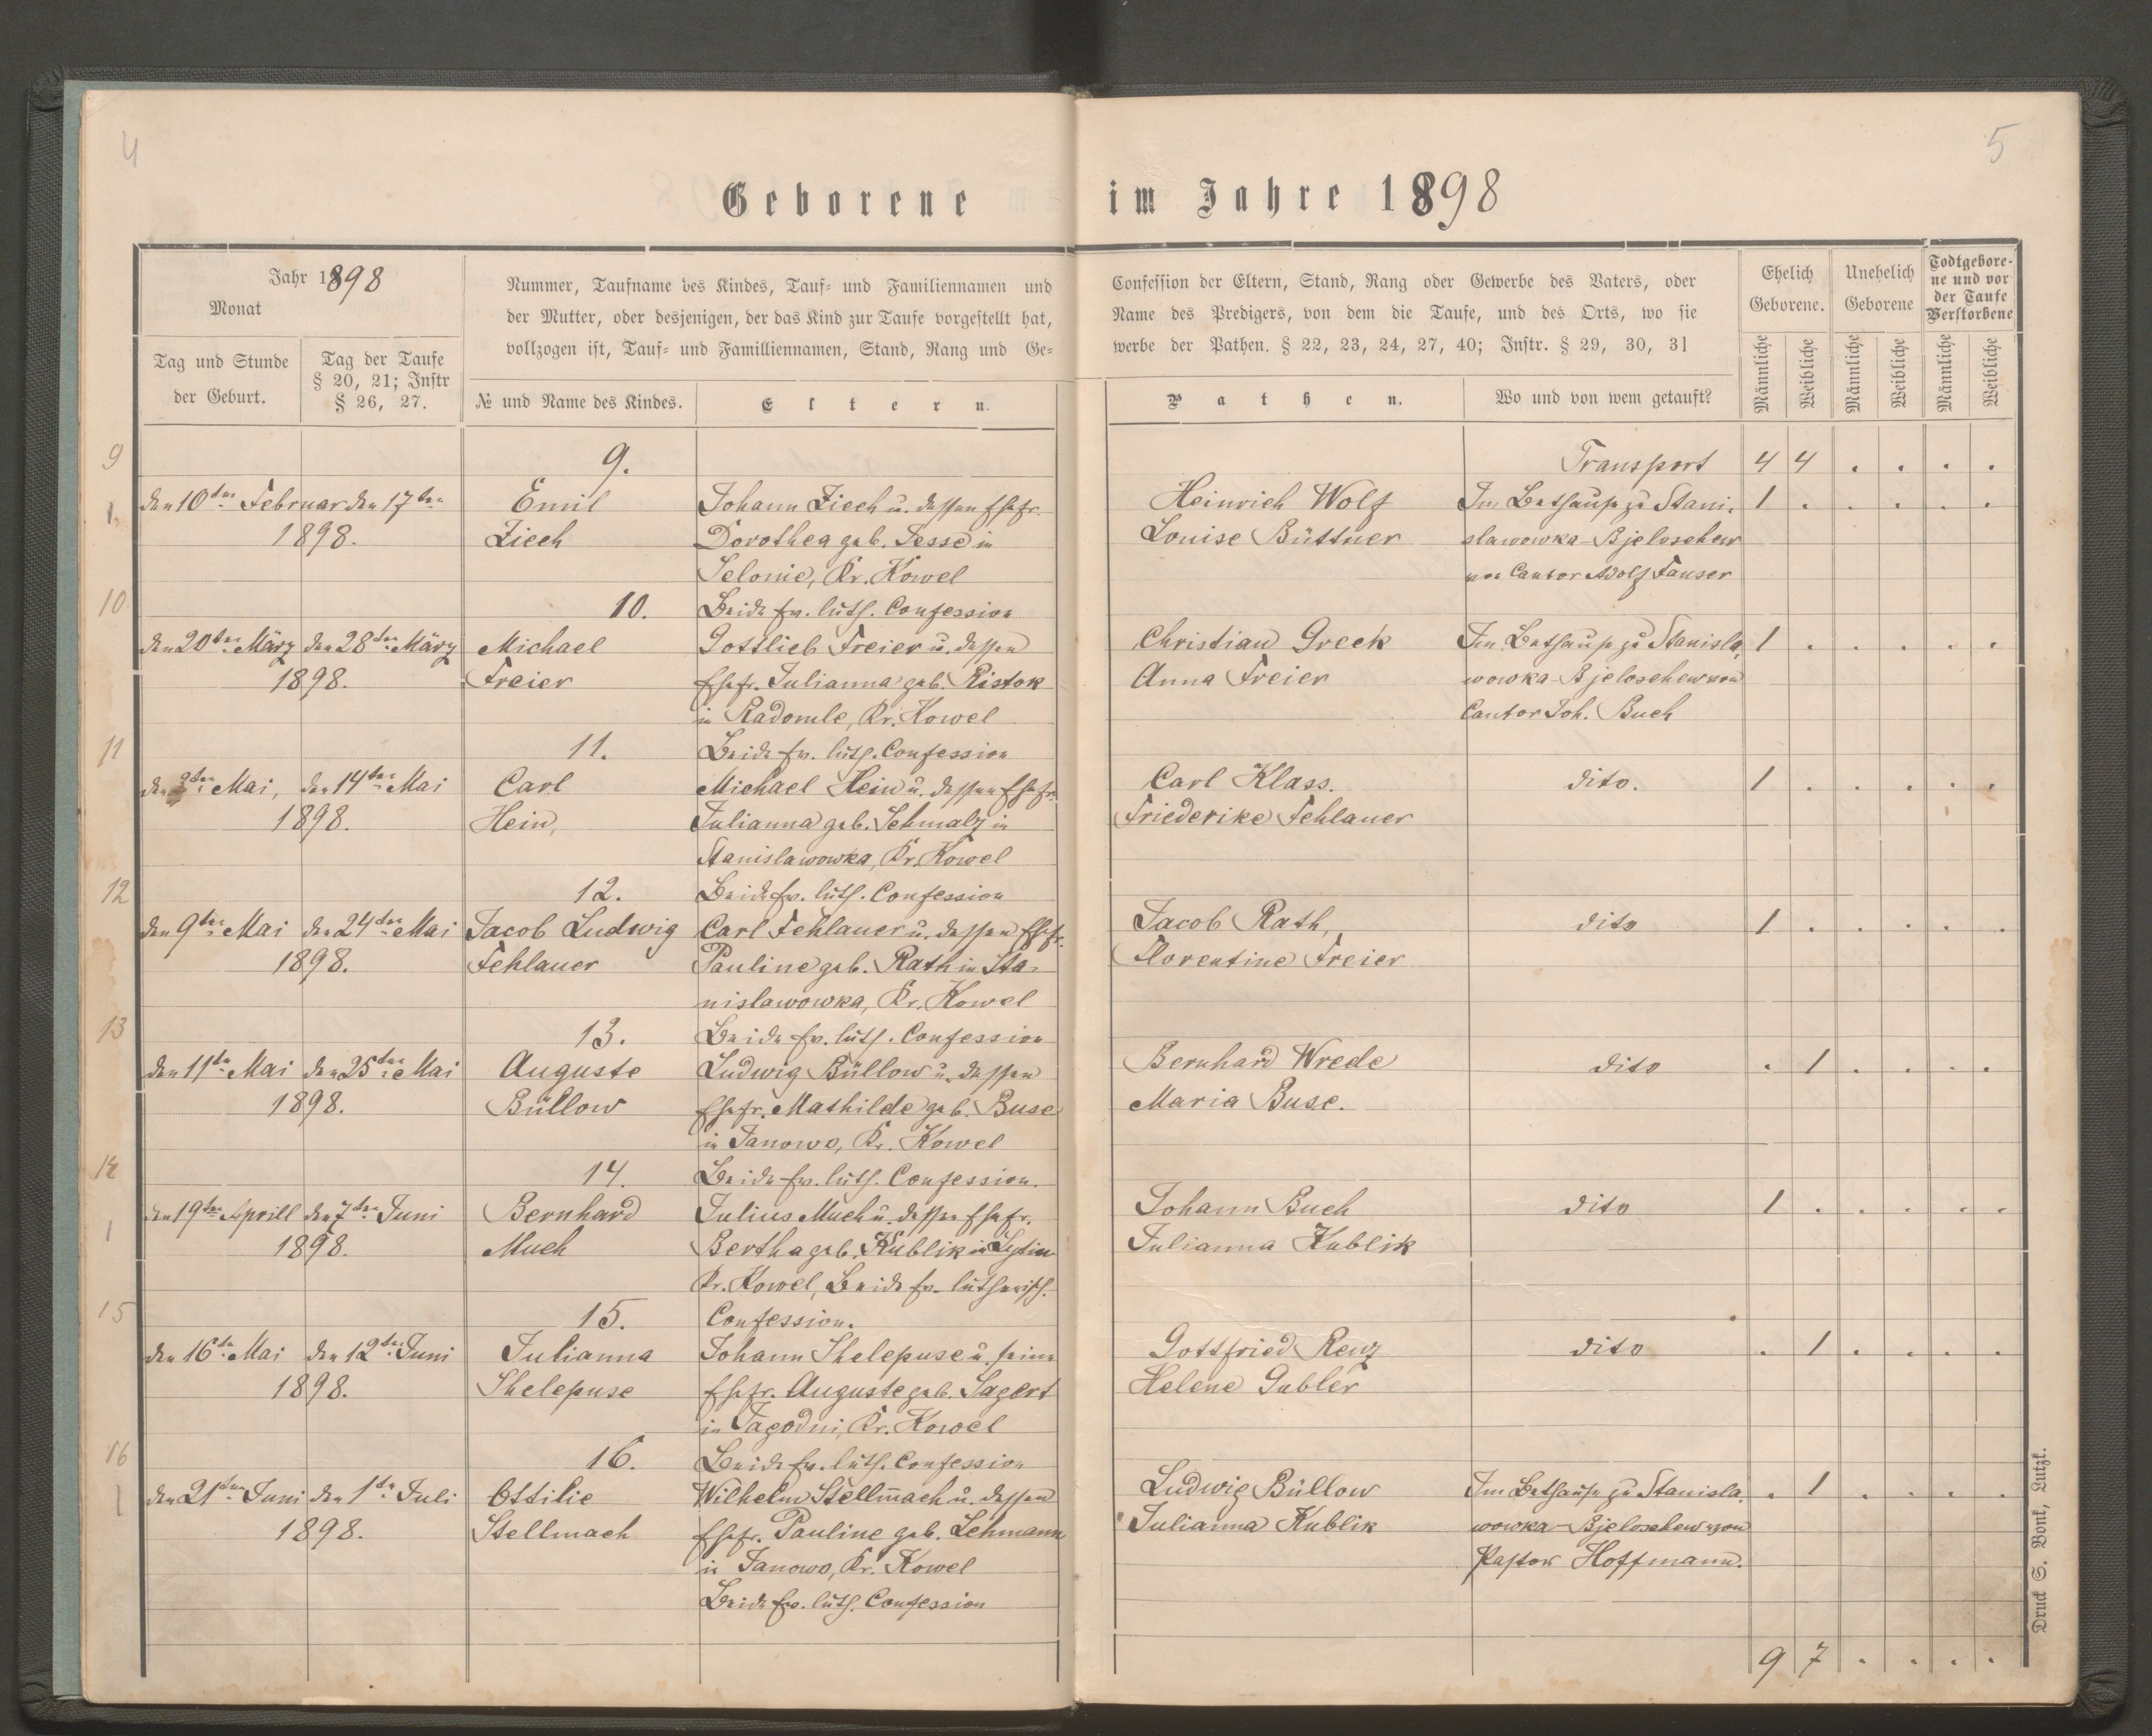 4
5
Geborene im Jahre 1898
Jahr 1898
Monat
Tag und Stunde
der Geburt.
Tag der Taufe
§ 20, 21; Instr
§ 26, 27.
Nummer, Taufname des Kindes, Tauf- und Familiennamen und
der Mutter, oder desjenigen, der das Kind zur Taufe vorgestellt hat,
vollzogen ist, Tauf- und Familliennamen, Stand, Rang und Ge-
№ und Name des Kindes.
Eltern.
Confession der Eltern, Stand, Rang oder Gewerbe des Vaters, oder
Name des Predigers, von dem die Taufe, und des Orts, wo sie
werbe der Pathen. § 22, 23, 24, 27, 40; Instr. § 29, 30, 31
Pathen.
Wo und von wem getauft?
Ehelich
Geborene.
Unehelich
Geborene
Todtgebore-
ne und vor
der Taufe
Verstorbene
Männliche
Weibliche
Männliche
Weibliche
Männliche
Weibliche
9
9.
Transport 4 4 . . . .
1.
den 10ten Februar den 17ten
1898.
Emil
Ziech
Johann Ziech u. dessen Ehefr.
Dorothea geb. Jesse in
Selonie, Kr. Kowel
Beide ev. luth. Confession
Heinrich Wolf
Louise Büttner
Im Bethause zu Stani-
slawowka-Bjeloschew
von Cantor Adolf Fauser
1 . . . . .
10
10.
den 20ten März den 28ten März
1898.
Michael
Freier
Gottlieb Freier u. dessen
Ehefr. Julianna geb. Ristok
in Radomle, Kr. Kowel
Beide ev. luth. Confession
Christian Greek
Anna Freier
Im Bethause zu Stanisla-
wowka-Bjeloschew von
Cantor Joh. Buch
1 . . . . .
11
11.
Mai, den 14ten Mai
1898.
Carl
Hein,
Michael Hein u. dessen Ehefr.
Julianna geb. Schmalz in
Stanislawowka, Kr. Kowel
Beide ev. luth. Confession
Carl Klass.
Friederike Fehlauer
dito.
1 . . . . .
12
12.
den 9ten Mai den 24ten Mai
1898.
Jacob Ludwig
Fehlauer
Carl Fehlauer u. dessen Ehefr.
Pauline geb. Rath in Sta-
nislawowka, Kr. Kowel
Beide ev. luth. Confession
Jacob Rath,
Florentine Freier
dito
1 . . . . .
13
13.
den 11te Mai den 25ten Mai
1898.
Auguste
Büllow
Ludwig Büllow u. dessen
Ehefr. Mathilde geb. Buse
in Janowo, Kr. Kowel
Beide ev. luth. Confession.
Bernhard Wrede
Maria Buse.
dito
. 1 . . . .
14
14.
1
den 19ten Aprill den 7ten Juni
1898.
Bernhard
Much
Julius Much u. dessen Ehefr.
Bertha geb. Kublik in
Kr. Kowel, Beide ev. lutherisch.
Confession.
Johann Buch
Julianna Kublik
dito
1 . . . . .
15
15.
den 16te Mai den 12ten Juni
1898.
Julianna
Shelepuse
Johann Shelepuse u. seine
Ehefr. Auguste geb. Sagert
in Jagodni, Kr. Kowel
Beide ev. luth. Confession
Gottfried Renz
Helene Gubler
dito
. 1 . . . .
16
16.
1
den 21ten Juni den 1te Juli
1898.
Ottilie
Stellmach
Wilhelm Stellmach u. dessen
Ehefr. Pauline geb. Lehmann
in Janowo, Kr. Kowel
Beide ev. luth. Confession
Ludwig Büllow
Julianna Kublik
Im Bethause zu Stanisla-
wowka-Bjeloschew von
Pastor Hoffmann.
. 1 . . . .
9 7 . . . .
Druck S. Bonk, Lutzk.